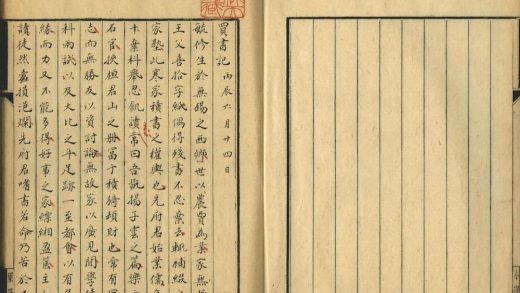 買書記 丙辰六月廿四日
毓修生於無錫之西鄉世以農賈為業家無
王父喜拾字紙偶得殘書不忍棄去輒補綴
家塾此寒家積書之權輿也先府君始業儒
棄科舉忍飢讀常曰吾揚子雲之篇樂
石官挾桓君山之冊富于積猗頓財也常有
志而無勝友以資討論無故家以廣見聞學
科試以及大比之年足跡一至都會以有
緣而力又不能多得好事之家縹緗盈篋主
讀徒然蠹損浥爛先府君嗜書若命乃苦於